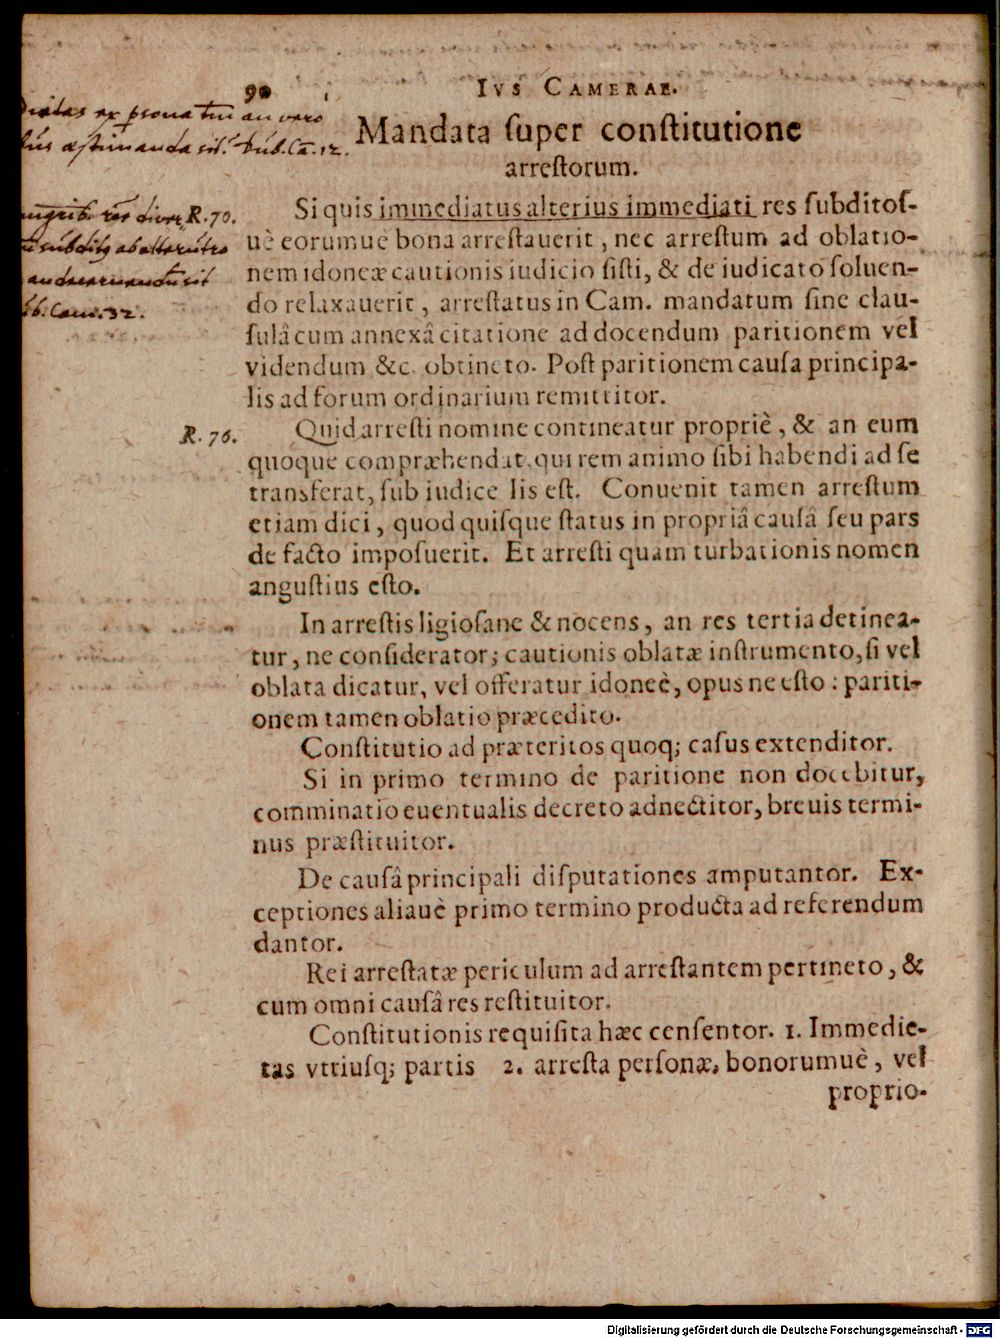 90
IVS CAMERAE.
Mandata ſuper conſtitutione
arreſtorum.
R. 70.
Si quis immediatus alterius immediati res ſubditoſ-
uè eorumuè bona arreſtauerit, nec arreſtum ad oblatio-
nem idoneæ cautionis iudicio ſiſti, & de iudicato ſoluen-
do relaxauerit, arreſtatus in Cam. mandatum ſine clau-
ſulâ cum annexâ citatione ad docendum paritionem vel
videndum &c. obtineto. Poſt paritionem cauſa principa-
lis ad forum ordinarium remittitor.
R. 76.
Quid arreſti nomine contineatur propriè, & an eum
quoque compræhendat, qui rem animo ſibi habendi ad ſe
transferat, ſub iudice lis eſt. Conuenit tamen arreſtum
etiam dici, quod quiſque ſtatus in propriâ cauſâ ſeu pars
de facto impoſuerit. Et arreſti quam turbationis nomen
anguſtius eſto.
In arreſtis ligioſane & nocens, an res tertia detinea-
tur, ne conſiderator; cautionis oblatæ inſtrumento, ſi vel
oblata dicatur, vel offeratur idoneè, opus ne eſto: pariti-
onem tamen oblatio præcedito.
Conſtitutio ad præteritos quoq; caſus extenditor.
Si in primo termino de paritione non docebitur,
comminatio euentualis decreto adnectitor, breuis termi-
nus præſtituitor.
De cauſâ principali diſputationes amputantor. Ex-
ceptiones aliauè primo termino producta ad referendum
dantor.
Rei arreſtatæ periculum ad arreſtantem pertineto, &
cum omni cauſâ res reſtituitor.
Conſtitutionis requiſita hæc cenſentor. 1. Immedie-
tas vtriuſq; partis 2. arreſta perſonæ, bonorumuè, vel
proprio-
Digitalisierung gefördert durch die Deutsche Forschungsgemeinschaft - DFG